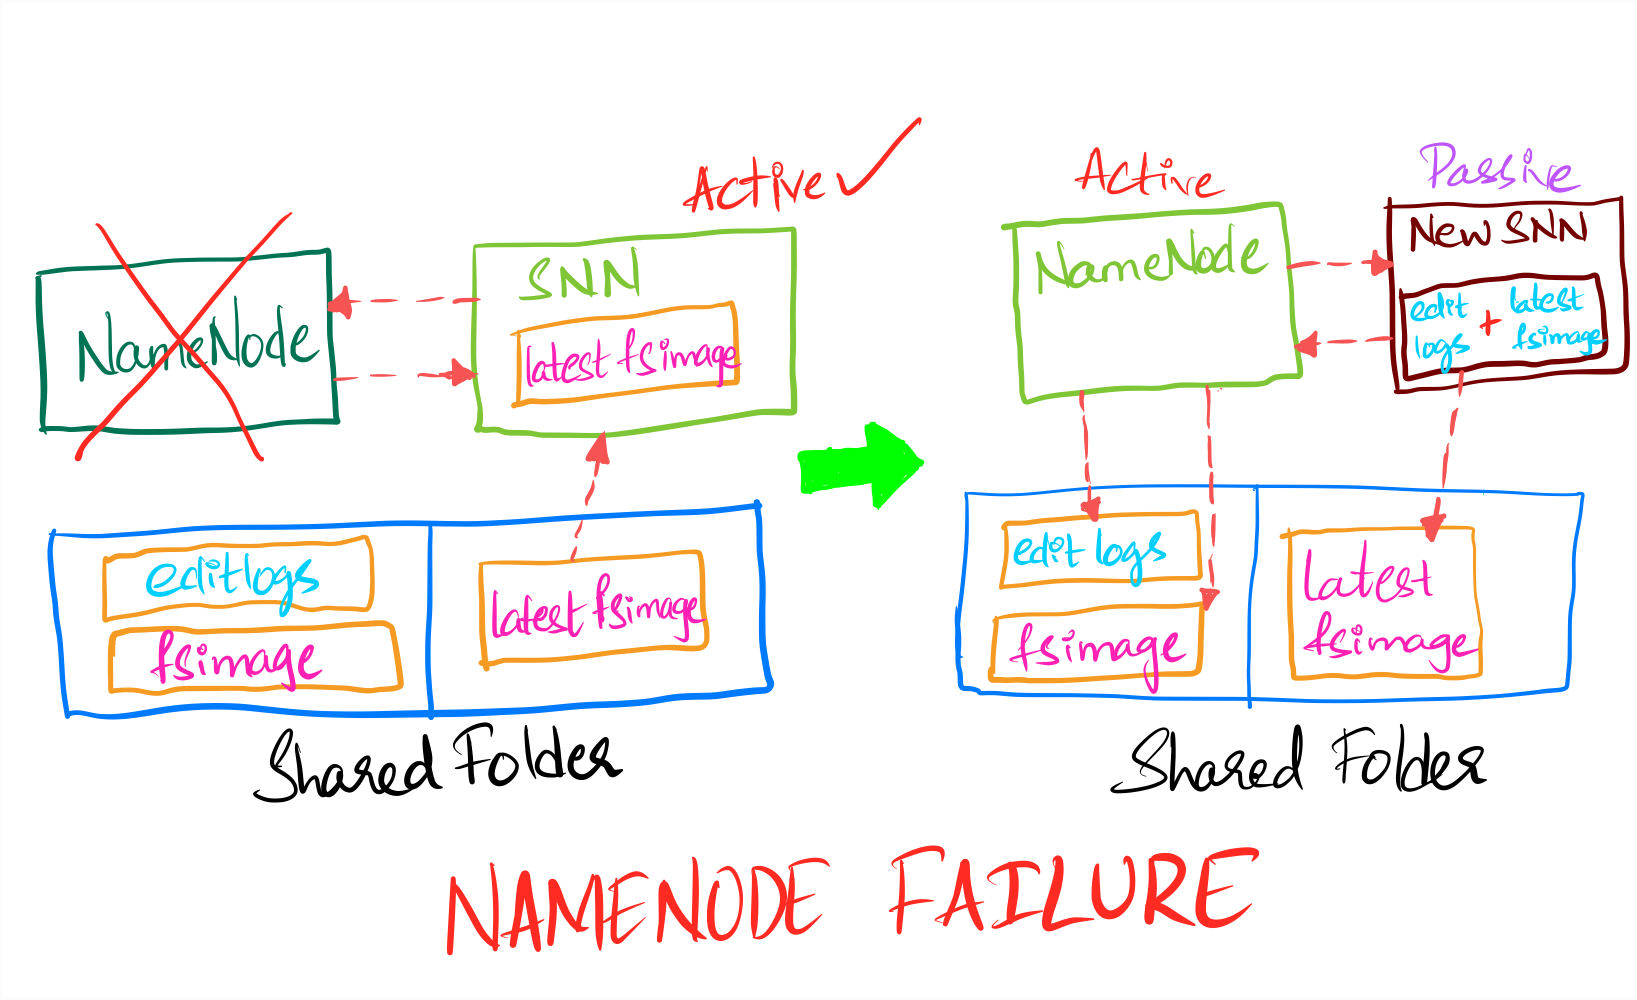 Active
NameNode
SNN
latest fsimage
editlogs
fsimage
latest fsimage
Shared Folder
Active
Passive
NameNode
New SNN
edit logs + latest fsimage
edit logs
fsimage
latest
fsimage
Shared Folder
NAMENODE FAILURE